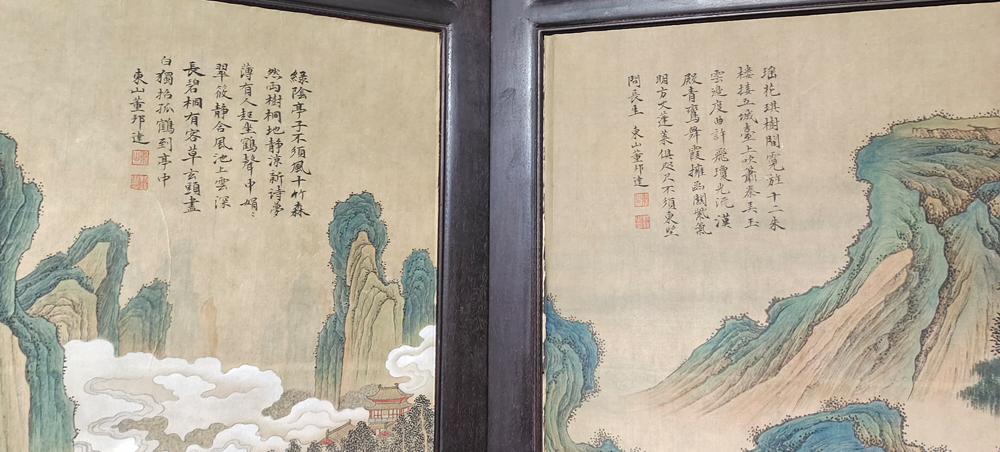 瑤花琪樹閬霓旌十二朱
樓接五城臺上吹簫秦弄玉
雲邊度曲許飛瓊光沉漢
殿青鸞舞霞擁函關紫氣
明方丈蓬萊俱咫尺不須東望
問長生 東山董邦達
綠陰亭子不須風十竹森
然兩樹桐地靜涼新詩夢
薄有人起坐鶴聲中娟〻
翠筱靜含風池上雲深
長碧桐有客草玄頭盡
白獨招孤鶴到亭中
東山董邦達